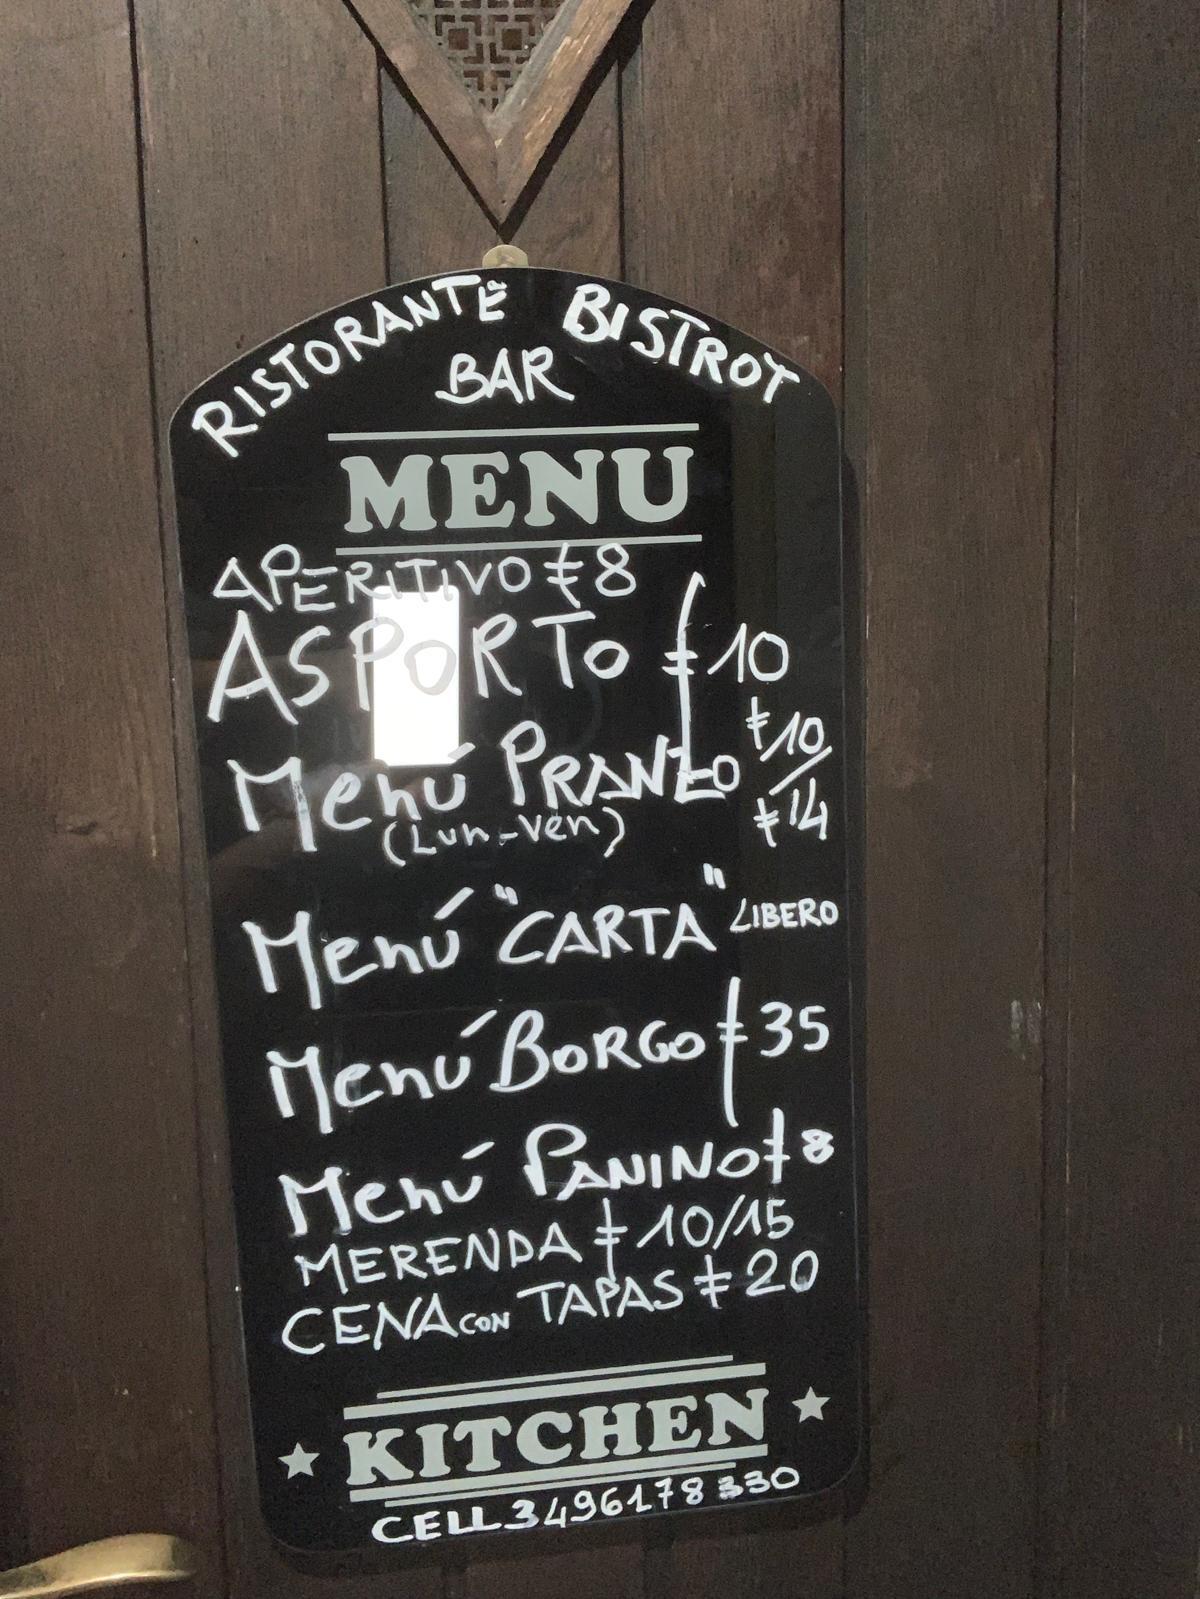 RISTORANTE BISTROT
BAR
MENU
APERITIVO € 8
ASPORTO € 10
Menú PRANZO €10/€14
(Lun-Ven)
Menú "CARTA" LIBERO
Menú BORGO € 35
Menú PANINO € 8
MERENDA € 10/15
CENA CON TAPAS € 20
KITCHEN
CELL 3496178330